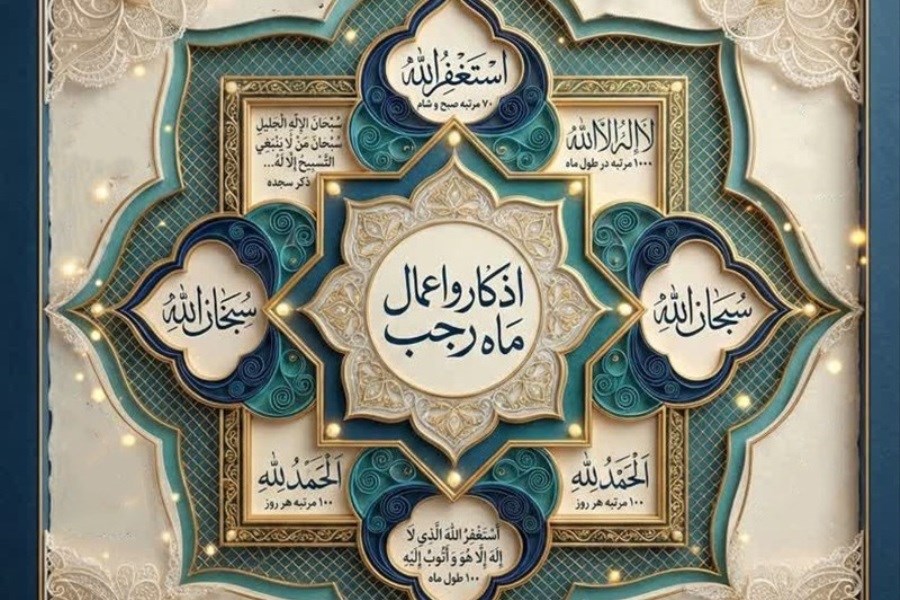 أَسْتَغْفِرُاللّٰه
۷۰ مرتبه صبح و شام
سُبْحَانَ الإِلَهِ الْجَلِيلِ
سُبْحَانَ مَنْ لَا يَنْبَغِي
التَّسْبِيحُ إِلَّا لَهُ...
ذکر سجده
لا إِلٰهَ إِلَّا اللّٰه
۱۰۰۰ مرتبه در طول ماه
سُبْحَانَ اللّٰه
اذکار و اعمال
ماه رجب
سُبْحَانَ اللّٰه
اَلْحَمْدُ لِلّٰه
۱۰۰ مرتبه هر روز
اَلْحَمْدُ لِلّٰه
۱۰۰ مرتبه هر روز
أَسْتَغْفِرُ اللهَ الَّذِي لَا
إِلَهَ إِلَّا هُوَ وَ أَتُوبُ إِلَيْهِ
۱۰۰ طول ماه